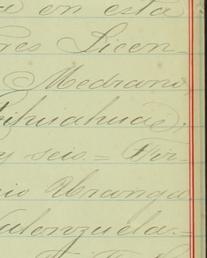 en esta
res Licen
Medrano
Chihuahua,
y seis.= Fir-
nio Uranga
Valenzuela.=